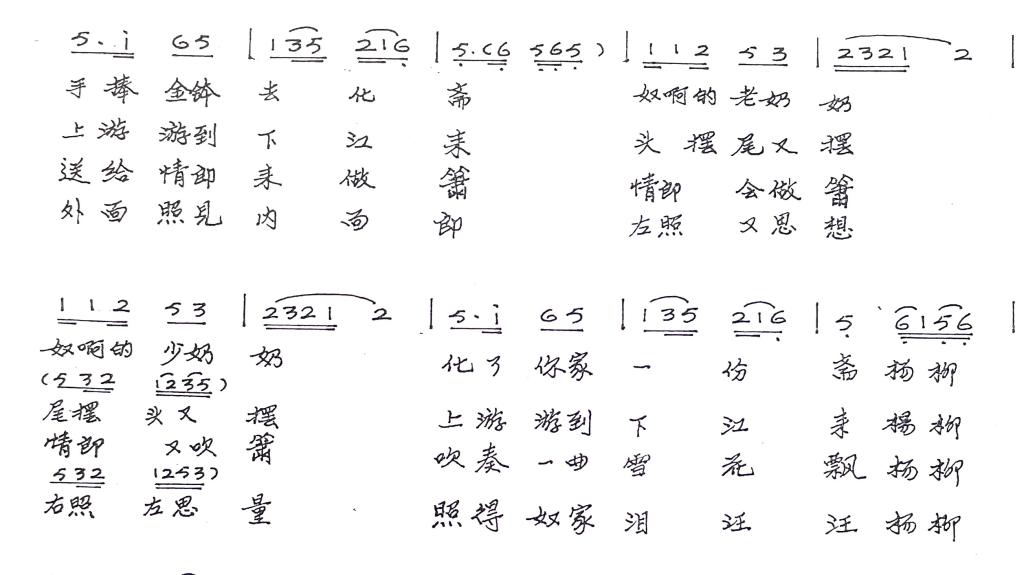 5. i 65 | 135 216 | 5.(6 565) | 112 53 | 2321 2 |
手捧 金钵 去 化 斋 奴啊的 老奶 奶
上游 游到 下 江 来 头摆 尾又 摆
送给 情郎 来 做 箫 情郎 会做 箫
外面 照见 内 面 郎 左照 又思 想
112 53 | 2321 2 | 5. i 65 | 135 216 | 5 6156 |
奴啊的 少奶 奶 化了 你家 一 份 斋 杨柳
(532 1235)
尾摆 头又 摆 上游 游到 下 江 来 楊柳
情郎 又吹 箫 吹奏 一曲 雪 花 飘 杨柳
532 1253)
右照 左思 量 照得 奴家 泪 汪 汪 杨柳